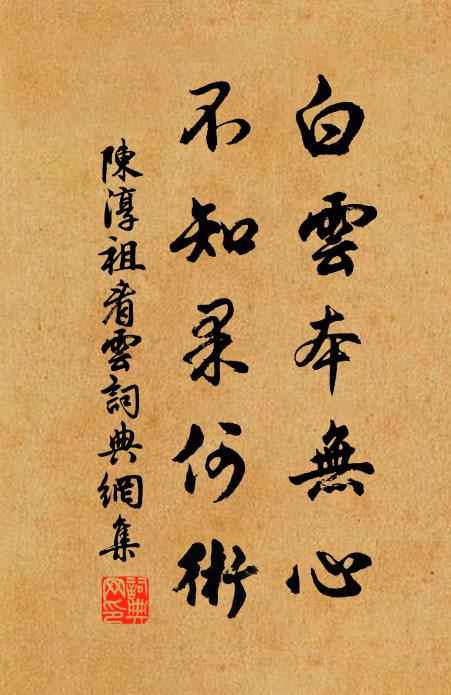 白雲本無心
不知果何術
陳淳祖看雲詞典網集
詞典网印